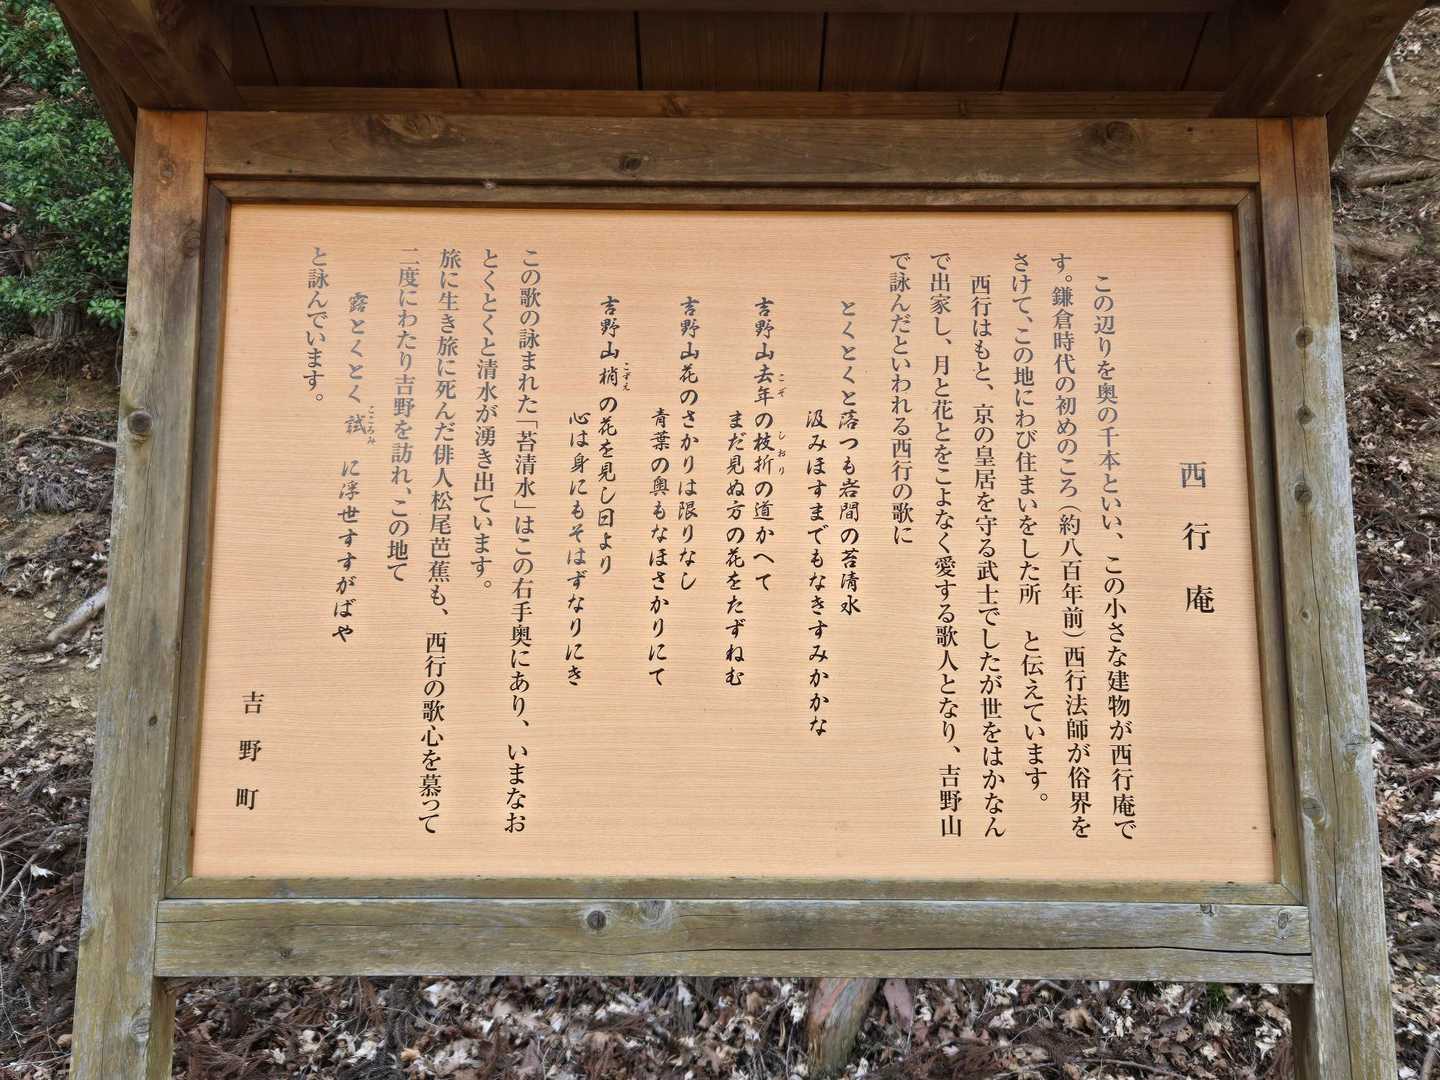 西行庵
この辺りを奥の千本といい、この小さな建物が西行庵で
す。鎌倉時代の初めのころ（約八百年前）西行法師が俗界を
さけて、この地にわび住まいをした所　と伝えています。
西行はもと、京の皇居を守る武士でしたが世をはかなん
で出家し、月と花とをこよなく愛する歌人となり、吉野山
で詠んだといわれる西行の歌に
とくとくと落つも岩間の苔清水
汲みほすまでもなきすみかかな
吉野山去年の枝折の道かへて
こぞ しおり
まだ見ぬ方の花をたずねむ
吉野山花のさかりは限りなし
青葉の奥もなほさかりにて
吉野山梢の花を見し日より
こずえ
心は身にもそはずなりにき
この歌の詠まれた「苔清水」はこの右手奥にあり、いまなお
とくとくと清水が湧き出ています。
旅に生き旅に死んだ俳人松尾芭蕉も、西行の歌心を慕って
二度にわたり吉野を訪れ、この地て
露とくとく試に浮世すすがばや
こころみ
と詠んでいます。
吉野町